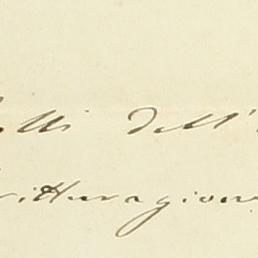 elli dell'
ritturagione